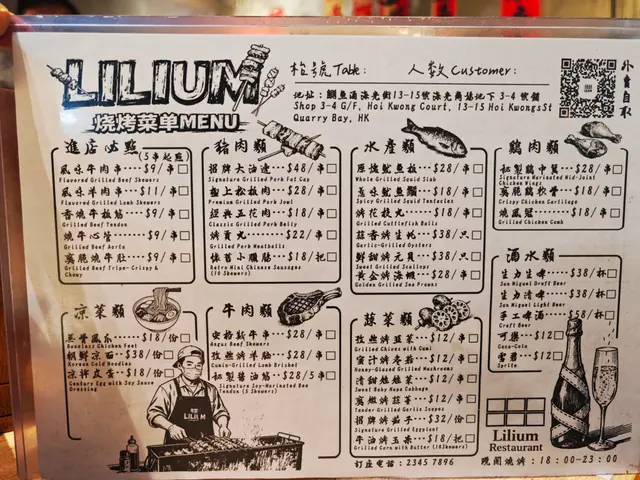 LILIUM
烧烤菜单MENU
枱號 Table:
人数 Customer:
外賣自取
地址：鰂魚涌海光街13-15號海光商場地下 3-4 號舖
Shop 3-4 G/F, Hoi Kwong Court, 13-15 Hoi KwongsSt
Quarry Bay, HK
進店必點
(5串起點)
風味牛肉串···$9/串
Flavored Grilled Beef Skewers
風味羊肉串···$11/串
Flavored Grilled Lamb Skewers
香燒牛板筋···$9/串
Grilled Beef Tendon
燒牛心管···$9/串
Grilled Beef Aorta
窩脆燒牛肚···$9/串
Grilled Beef Tripe- Crispy & Chewy
豬肉類
招牌大油邊···$48/串
Signature Grilled Pork Fat Cap
極上松板肉···$28/串
Premium Grilled Pork Jowl
經典五花肉···$18/串
Classic Grilled Pork Belly
烤貢丸···$22/串
Grilled Pork Meatballs
懷舊小臘腸···$18/把
Retro Mini Chinese Sausages
(10 Skewers)
水產類
原條魷魚···$28/串
Whole Grilled Squid Slab
惹味魷魚鬚···$18/串
Spicy Grilled Squid Tentacles
烤花技丸···$18/串
Grilled Cuttlefish Balls
蒜香烤生蚝···$38/只
Garlic-Grilled Oysters
鮮甜烤元貝···$38/只
Sweet Grilled Scallops
黃金烤海蝦···$28/串
Golden Grilled Sea Prawns
鷄肉類
秘製鷄中翼···$28/串
Signature Marinated Mid-Joint
Chicken Wings
窩脆鷄軟骨···$18/串
Crispy Chicken Cartilage
燒鳳冠···$18/串
Grilled Chicken Comb
酒水類
生力生啤···$38/杯
San Miguel Draft Beer
生力清啤···$38/杯
San Miguel Light Beer
手工啤酒···$58/杯
Craft Beer
可樂···$12
Coca-Cola
雪碧···$12
Sprite
涼菜類
無骨鳳爪···$18/份
Boneless Chicken Feet
朝鮮涼面···$38/份
Korean Cold Noodles
凉拌皮蛋···$18/份
Century Egg with Soy Sauce
Dressing
牛肉類
安格斯牛串···$28/串
Angus Beef Skewers
孜然烤羊腩···$28/串
Cumin-Grilled Lamb Brisket
秘製醬油筋···$28/5串
Signature Soy-Marinated Bee
Tendon (5 Skewers)
蔬菜類
孜然烤韮菜···$12/串
Grilled Chives with Cumi
蜜汁烤冬菇···$12/串
Honey-Glazed Grilled Mushrooms
清甜娃娃菜···$12/串
Sweet Baby Napa Cabbage
窩嫩烤蒜苔···$12/串
Tender Grilled Garlic Scapes
招牌烤茄子···$32/份
Signature Grilled Eggplant
牛油烤玉米···$18/把
Grilled Corn with Butter (10Skewers)
LILIUM
Lilium
Restaurant
訂座電話：2345 7896
晚間燒烤：18:00-23:00